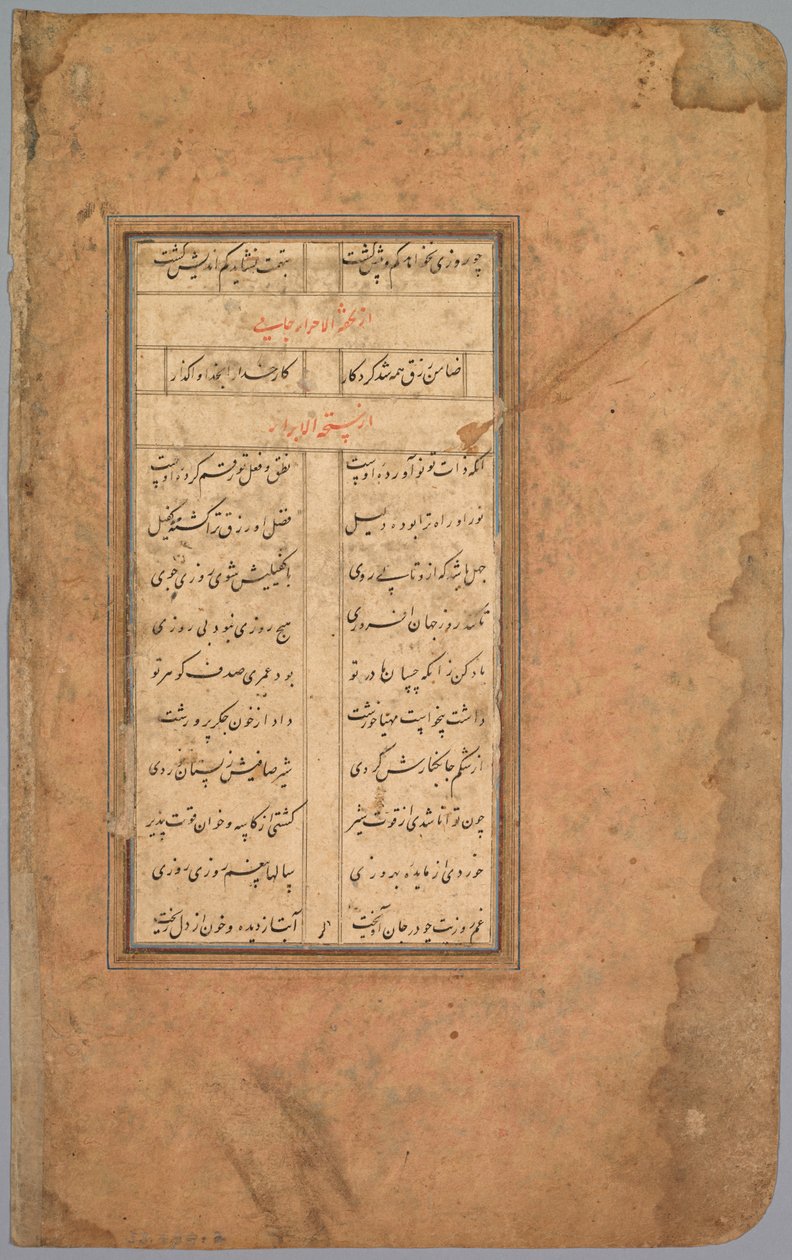 چو روزی نخواهد کم و بیش گشت بتهمت نشاید کم اندیش گشت
از تحفة الاحرار جامی
ضامن رزق همه شد کردکار کار خدا را بخدا واکذار
از سبحة الابرار
آنکه ذات تو نو آورده اوست نطق و فعل تو رقم کرده اوست
نور او راه ترا بوده دلیل فضل او رزق ترا کشته کفیل
جهل باشد که ازو تابی روی با کفیلیش شوی روزی جوی
تا کند روز جهان افروزی هیچ روزی نبود بی روزی
یاد کن زانکه چسان مادر تو بود عمری صدف کوهر تو
داشت بیخواست مهیا خورشت داد از خون جکر پرورشت
از شکم جا بکنارش کردی شیر صافیش ز پستان خوردی
چون توانا شدی از قوت شیر کشتی از کاسه و خوان قوت پذیر
خوردی از مایده بهروزی سالها بی غم روزی روزی
غم روزیت چو در جان آویخت آبت از دیده و خون از دل ریخت